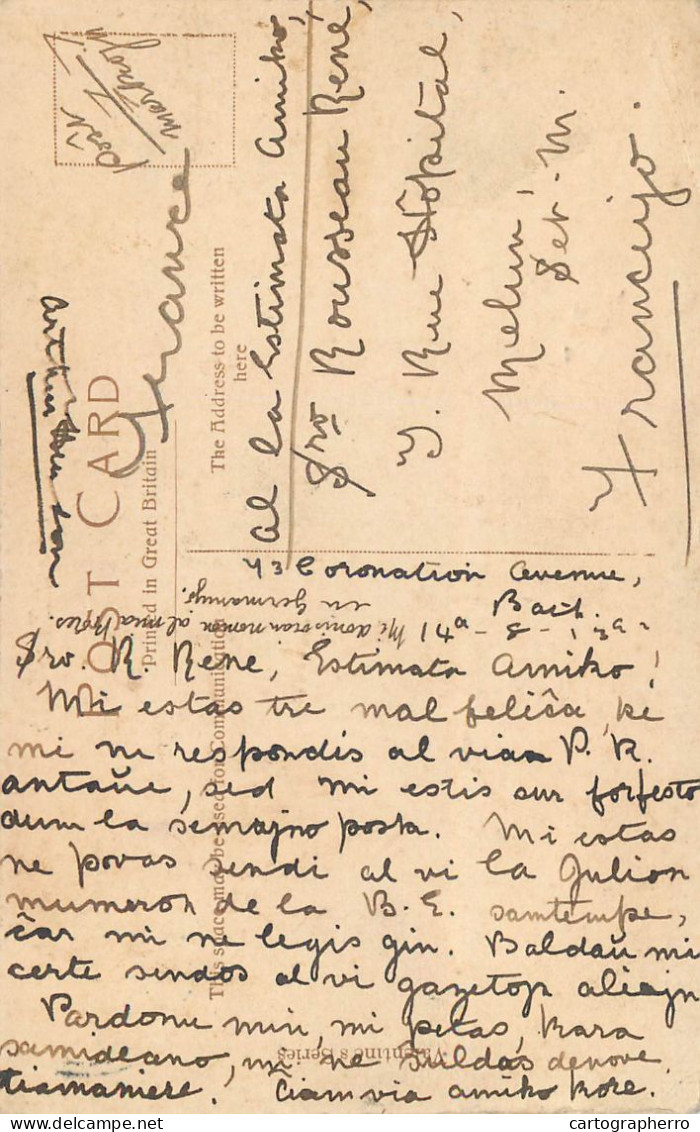 POST CARD
Printed in Great Britain
The Address to be written
here
This space may be used for Communication
Valentine's Series
France
al la Estimata Amiko,
Sro Rousseau René,
Rue Hôpital,
Melun,
Set. M.
Francujo.
43 Coronation Avenue,
Bath.
14a - 8 - 13a
Mi donis vian nomon al
en Germanujo.
Sro. R. René, Estimata Amiko!
Mi estas tre mal feliĉa, ke
mi ne respondis al vian P. K.
antaŭe, sed mi estis sur forfesto
dum la semajno posta. Mi estas
ne povas sendi al vi la Julion
numeron de la B. E. samtempe,
ĉar mi ne legis ĝin. Baldaŭ mi
certe sendos al vi gazetojn aliajn
Pardonu min, mi petas, kara
samideano, mi ne kuldas denove
tiamaniere. Ĉiam via amiko kore.
Arthur